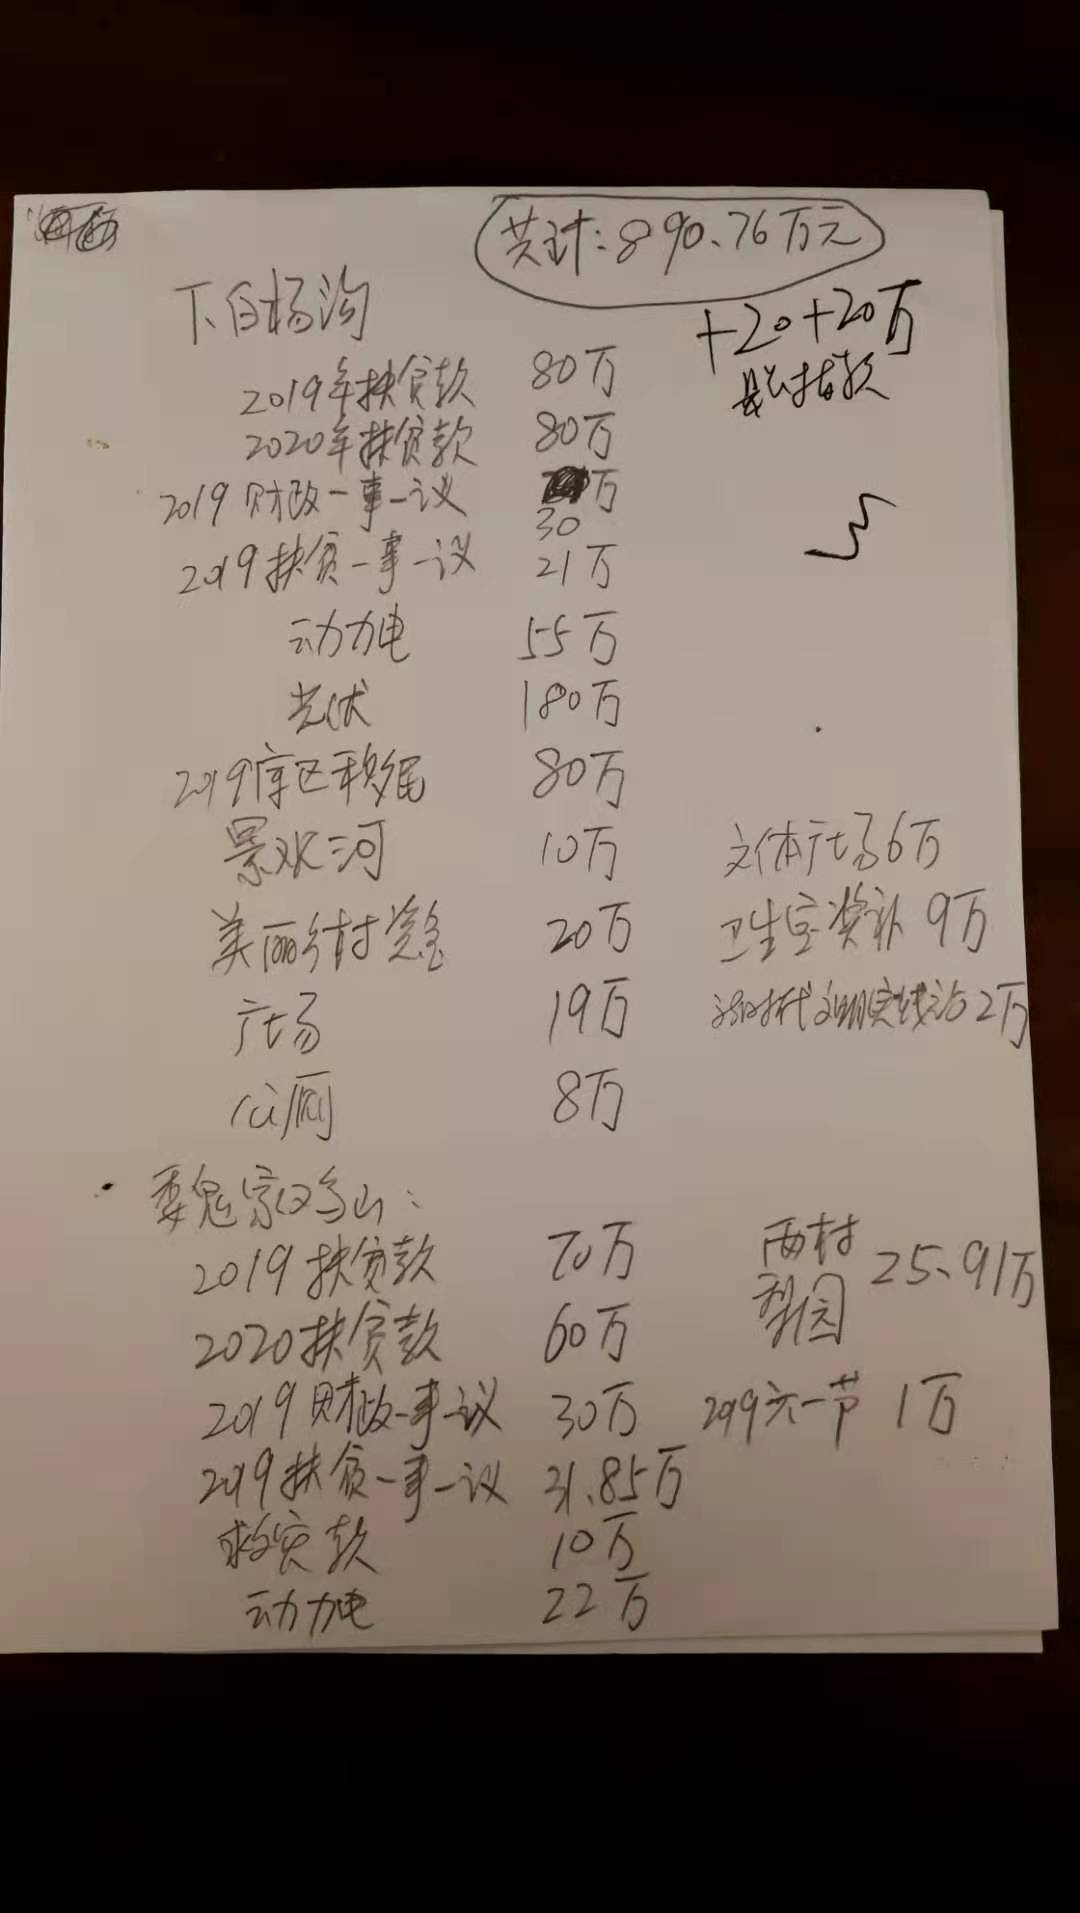 共计：890.76万元
+20+20万
下白杨沟
2019年扶贫款 80万
2020年扶贫款 80万
2019财政一事一议 万
30
2019扶贫一事一议 21万
动力电 55万
光伏 180万
2019库区移民 80万
景观河 10万 文体广场6万
美丽乡村资金 20万 卫生室奖补 9万
广场 19万 新时代文明实践站2万
公厕 8万
2019扶贫款 70万 两村
梨园 25.91万
2020扶贫款 60万
2019财政一事一议 30万 2019六一节 1万
2019扶贫一事一议 31.85万
款 10万
动力电 22万